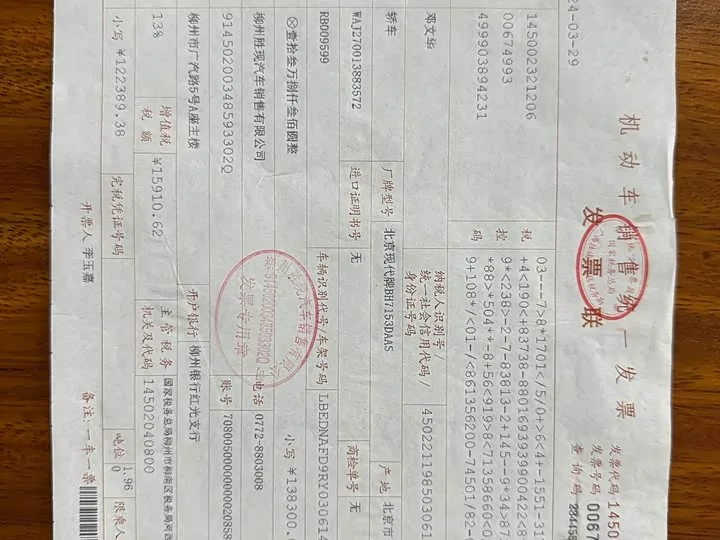 机动车销售统一发票
发票联
发票代码 1450
发票号码 0067
查询码
24-03-29
145002321206
00674993
499903894231
税控码
03---7>8*1701</5/0+>6<4+-1551-31
+4<190<+83738-8801693939900422<8
9*<2<238>-2-7-83813-2+145--9*34>87
*88>*504**-8+56<919>8<71358660<0
9+108*/<01-/<861356200-74501/82-
邓文华
纳税人识别号/
统一社会信用代码/
身份证号码
450221198503061
轿车
厂牌型号
北京现代牌BH7153DAAS
产地
北京市
WAJ270013883572
进口证明书号
无
商检单号
无
RB009599
车辆识别代号/车架号码
LBEDNAFD9RV030614
ⓧ壹拾叁万捌仟叁佰圆整
小写 ¥138300.
柳州胜现汽车销售有限公司
电话
0772-8803008
91450200348593302Q
账号
70800500000000020858
柳州市广汽路5号A座主楼
开户银行
柳州银行红光支行
发票专用章
13%
增值税
税额
¥15910.62
主管税务
机关及代码
国家税务总局柳州市柳南区税务局
14502040800
小写 ¥122389.38
完税凭证号码
吨位
1.96
0
限乘人
开票人 李玉嘉
备注: 一车一票